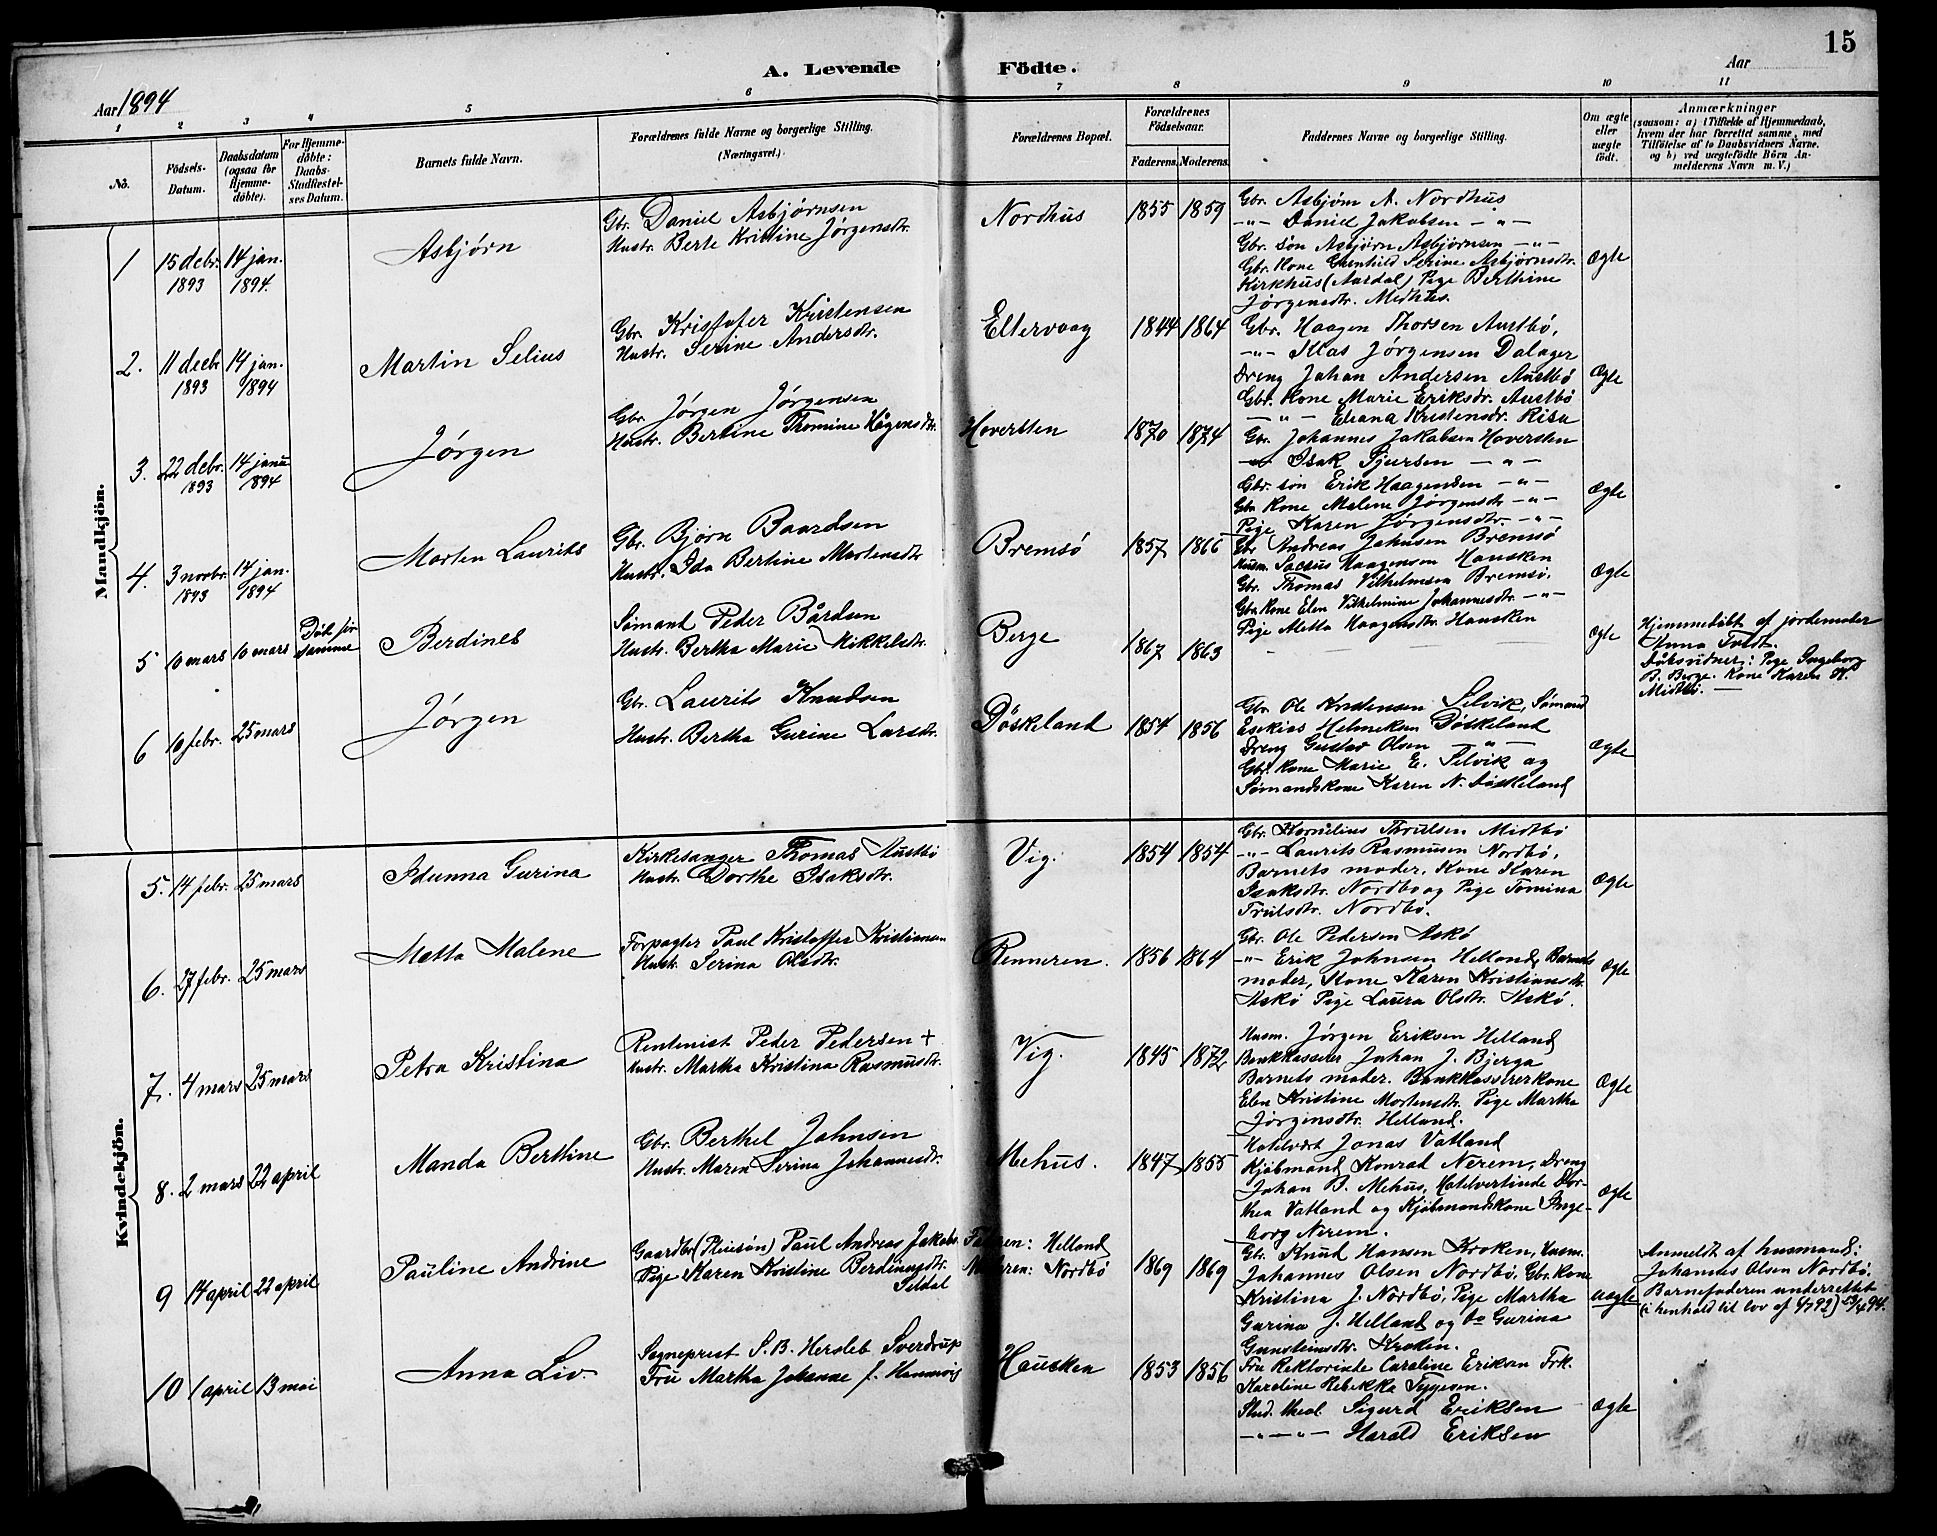 15
A. Levende Födte.
Aar 1894
Aar
1 2 3 4 5 6 7 8 9 10 11
No.
Födsels-Datum.
Daabsdatum (ogsaa for Hjemme-döbte).
For Hjemme-döbte: Daabs-Stadfæstel-ses Datum.
Barnets fulde Navn.
Forældrenes fulde Navne og borgerlige Stilling. (Næringsvei.)
Forældrenes Bopæl.
Forældrenes Födselsaar.
Faderens. Moderens.
Faddernes Navne og borgerlige Stilling.
Om ægte eller uægte födt.
Anmærkninger
(saasom: a) i Tilfælde af Hjemmedaab,
hvem der har forrettet samme, med
Tilföielse af to Daabsvidners Navne.
og b) ved uægtefödte Börn An-
melderens Navn m. V.)
Mandkjön.
1 15 debr. 1893 14 jan. 1894.
Asbjørn
Gbr. Daniel Asbjørnsen
Hustr. Berte Kristine Jørgensdtr.
Nordhus 1855 1859
Gbr. Asbjørn A. Nordhus
-"- Daniel Jakobsen -"-
Gbr. søn Asbjørn Asbjørnsen -"-
Gbr. Kone Gunhild Serine Asbjørnsdtr.
Kirkhus (Aardal) Pige Berthine
Jørgensdtr.
Ægte
2. 11 decbr 1893 14 jan. 1894
Martin Selius
Gbr. Kristofer Kristensen
Hustr. Serine Andersdtr.
Eltervaag 1844 1864
Gbr. Haagen Thorsen Austbø,
-"- Mas Jørgensen Dalager
Dreng Johan Andersen Austbø
Gbr. Kone Marie Eriksdr. Austbø
-"- Eliana Kristensdr. Risa
Ægte
3. 22 debr. 1893 14 janu 1894
Jørgen
Gbr. Jørgen Jørgensen
Hustr. Bertine Thomine Hågensdtr.
Hoversten 1870 1874
Gbr. Johannes Jakobsen Hoversten
-"- Isak Sjursen -"-
Gbr. søn Erik Haagensen -"-
Gbr Kone Malene Jørgensdtr -"-
Pige Karen Jørgensdtr. -"-
Ægte
4. 3 novbr. 1893 14 jan. 1894
Morten Laurits
Gbr. Bjørn Baardsen
Hustr. Ida Bertine Mortensdtr
Bremsø 1857 1866
Gbr Andreas Johnsen Bremsø
Husm. Haagensen Hausken
Gbr. Thomas Vilhelmsen Bremsø.
Gbr. Kone Elen Vilhelmine Johannesdtr. -"-
Pige Metta Haagensdtr. Hausken
Ægte
5 10 mars 10 mars Død før samme
Berdines
Sømand Peder Bårdsen
Hustr. Bertha Marie Mikkelsdtr.
Berge 1867 1863
Ægte
Hjemmedøbt af jordemoder
Anna Tvedt.
Dåbsvidner: Pige Ingeborg
B. Berge. Kone Karen K.
Midtbø. —
6 10 febr. 25 mars
Jørgen
Gbr. Laurits Knudsen
Hustr. Bertha Gurine Larsdtr.
Døskeland 1854 1856
Gbr. Ole Kristensen Selvik, Sømand
Esekias Helmeksen Døskeland
Dreng Gustav Olsen -"-
Gbr. Kone Marie E. Selvik og
Sømandskone Karen N. Døskeland
Ægte
Kvindekjön.
5. 14 febr. 25 mars
Idunna Gurina
Kirkesanger Thomas Austbø
Hustr. Dorthe Isaksdtr.
Vig. 1854 1854
Gbr. Kornelius Thrulsen Midtbø
-"- Laurits Rasmusen Nordbø,
Barnets moder, Kone Karen
Isaksdtr. Nordbø og Pige Tomina
Trulsdtr. Nordbø.
Ægte
6. 27 febr. 25 mars
Metta Malene
Forpagter Paul Kristoffer Kristiansen
Hustr. Serina Olsdtr.
Renneren. 1856 1864
Gbr. Ole Pedersen Askø
-"- Erik Johnsen Helland, Barnets
moder, Kone Karen Kristiansdtr.
Askø Pige Laura Olsdtr. Askø.
Ægte
7. 4 mars 25 mars
Petra Kristina
Rentenist Peder Pedersen +
Hustr. Martha Kristina Rasmusdtr.
Vig. 1845 1872
Husm. Jørgen Eriksen Helland
Bankkasserer Johan J. Bjerga
Barnets moder. Bankkassererkone
Elen Kristine Mortensdtr. Pige Martha
Jørgensdtr. Helland.
Ægte
8. 2 mars 22 april
Manda Berthine
Gbr. Berthel Johnsen
Hustr. Maren Serina Johannesdtr.
Mehus. 1847 1855
Hotelvært Jonas Vatland
Kjøbmand Konrad Nerem, Dreng
Johan B. Mehus, Hotelvertinde Dor-
thea Vatland og Kjøbmandskone Inge-
borg Nerem.
Ægte
9 14 april 22 april
Pauline Andrine
Gaardbr. (Pleiesøn) Paul Andreas Jakobs.
Pige Karen Kristine Berdinusdtr.
Seldal
Faderen: Helland
Moderen: Nordbø
1869 1869
Gbr. Knud Hansen Kroken, Husm.
Johannes Olsen Nordbø, Gbr. Kone
Kristina J. Nordbø, Pige Martha
Gurina J. Helland og do Gurina
Gunsteinsdtr. Kroken.
Uægte
Anmeldt af husmand:
Johannes Olsen Nordbø.
Barnefaderen underrettet
(i henhold til lov af 6/7 92) 23/4 94.
10 1 april 13 mai
Anna Liv.
Sogneprest S. B. Hersleb Sverdrup
Fru Martha Johanne f.
Hausken 1853 1856
Fru Rektorinde Caroline Eriksen Frk.
Karoline Rebekka Tygesen.
Stud. theol. Sigurd Eriksen
-"-"- Harald Eriksen
Ægte